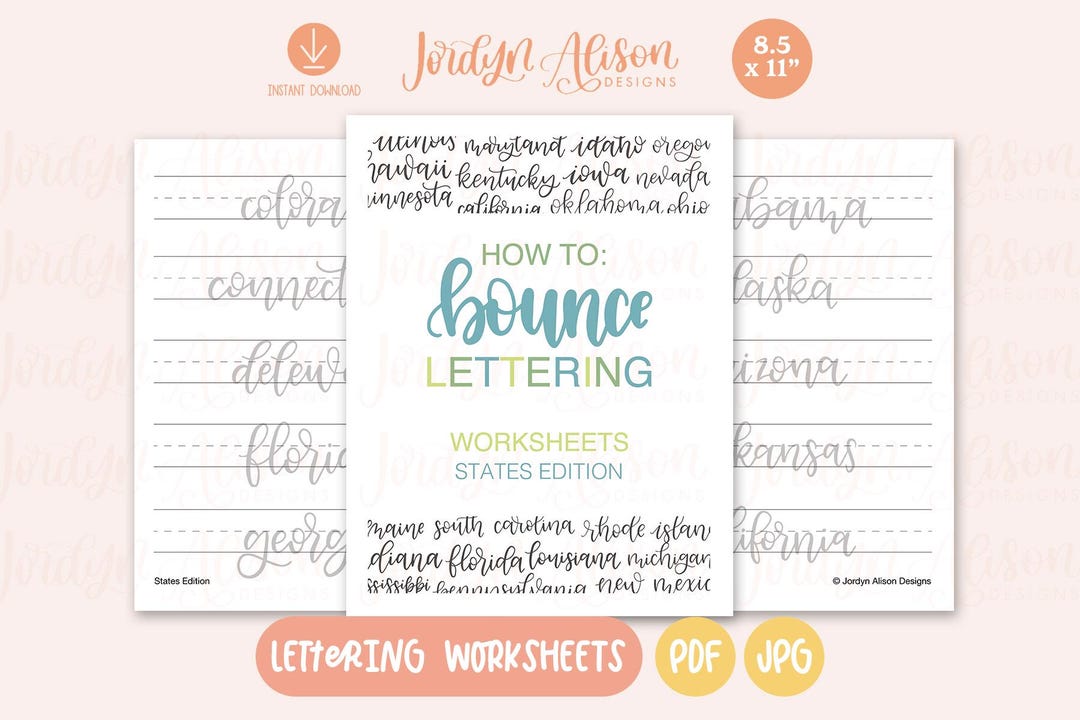 INSTANT DOWNLOAD
Jordyn Alison
DESIGNS
8.5
x 11”
illinois maryland idaho oregon
hawaii kentucky iowa nevada
minnesota california oklahoma ohio
HOW TO:
bounce
LETTERING
WORKSHEETS
STATES EDITION
maine south carolina rhode islan
diana florida louisiana michigan
ssissippi pennsylvania new mexic
colora
connect
delew
florid
georg
States Edition
abama
laska
izona
kansas
lifornia
© Jordyn Alison Designs
LETTERING WORKSHEETS
PDF
JPG